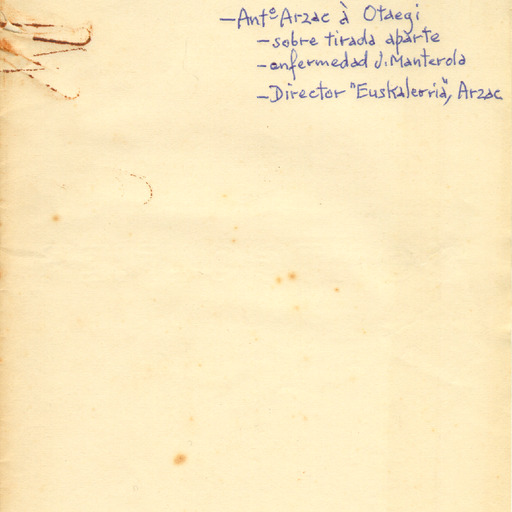 -Antº Arzac à Otaegi
-sobre tirada aparte
-enfermedad J. Manterola
-Director "Euskalerria", Arzac